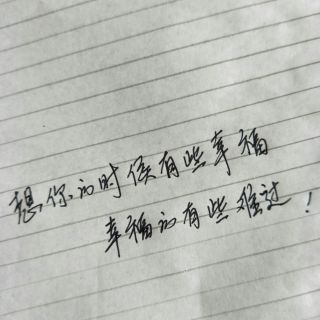 想你的时候有些幸福
幸福的有些难过！